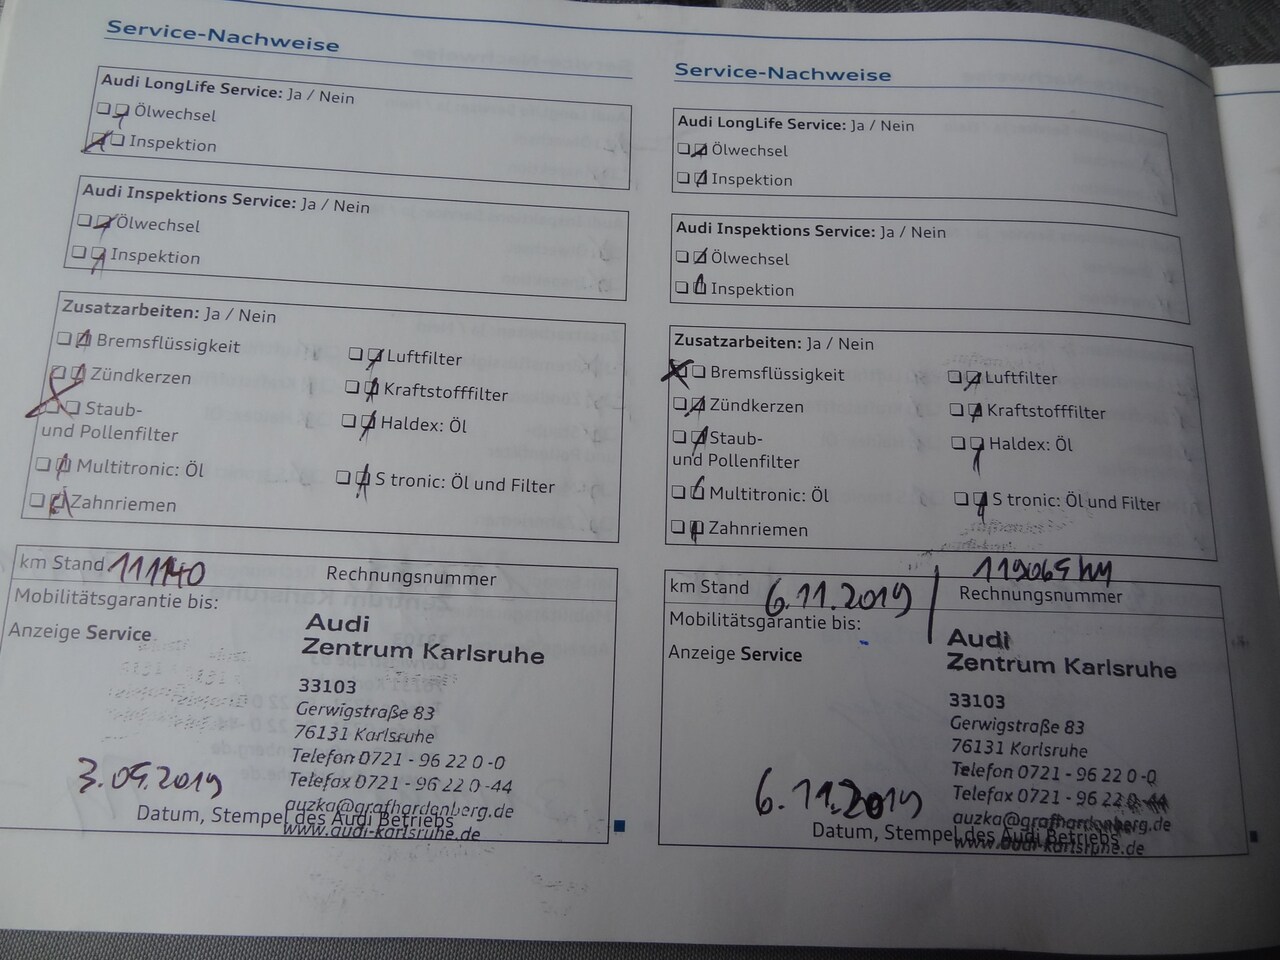 Service-Nachweise
Audi LongLife Service: Ja / Nein
Ölwechsel
Inspektion
Audi Inspektions Service: Ja / Nein
Ölwechsel
Inspektion
Zusatzarbeiten: Ja / Nein
Bremsflüssigkeit
Zündkerzen
Staub-
und Pollenfilter
Multitronic: Öl
Zahnriemen
Luftfilter
Kraftstofffilter
Haldex: Öl
S tronic: Öl und Filter
km Stand 111140
Rechnungsnummer
Mobilitätsgarantie bis:
Anzeige Service
Audi
Zentrum Karlsruhe
33103
Gerwigstraße 83
76131 Karlsruhe
Telefon 0721 - 96 22 0 -0
Telefax 0721 - 96 22 0 -44
auzka@grafhardenberg.de
www.audi-karlsruhe.de
3.09.2019
Datum, Stempel des Audi Betriebs
Service-Nachweise
Audi LongLife Service: Ja / Nein
Ölwechsel
Inspektion
Audi Inspektions Service: Ja / Nein
Ölwechsel
Inspektion
Zusatzarbeiten: Ja / Nein
Bremsflüssigkeit
Zündkerzen
Staub-
und Pollenfilter
Multitronic: Öl
Zahnriemen
Luftfilter
Kraftstofffilter
Haldex: Öl
S tronic: Öl und Filter
km Stand 6.11.2019
Rechnungsnummer
Mobilitätsgarantie bis:
Anzeige Service
Audi
Zentrum Karlsruhe
33103
Gerwigstraße 83
76131 Karlsruhe
Telefon 0721 - 96 22 0 -0
Telefax 0721 - 96 22 0 -44
auzka@grafhardenberg.de
www.audi-karlsruhe.de
6.11.2019
Datum, Stempel des Audi Betriebs